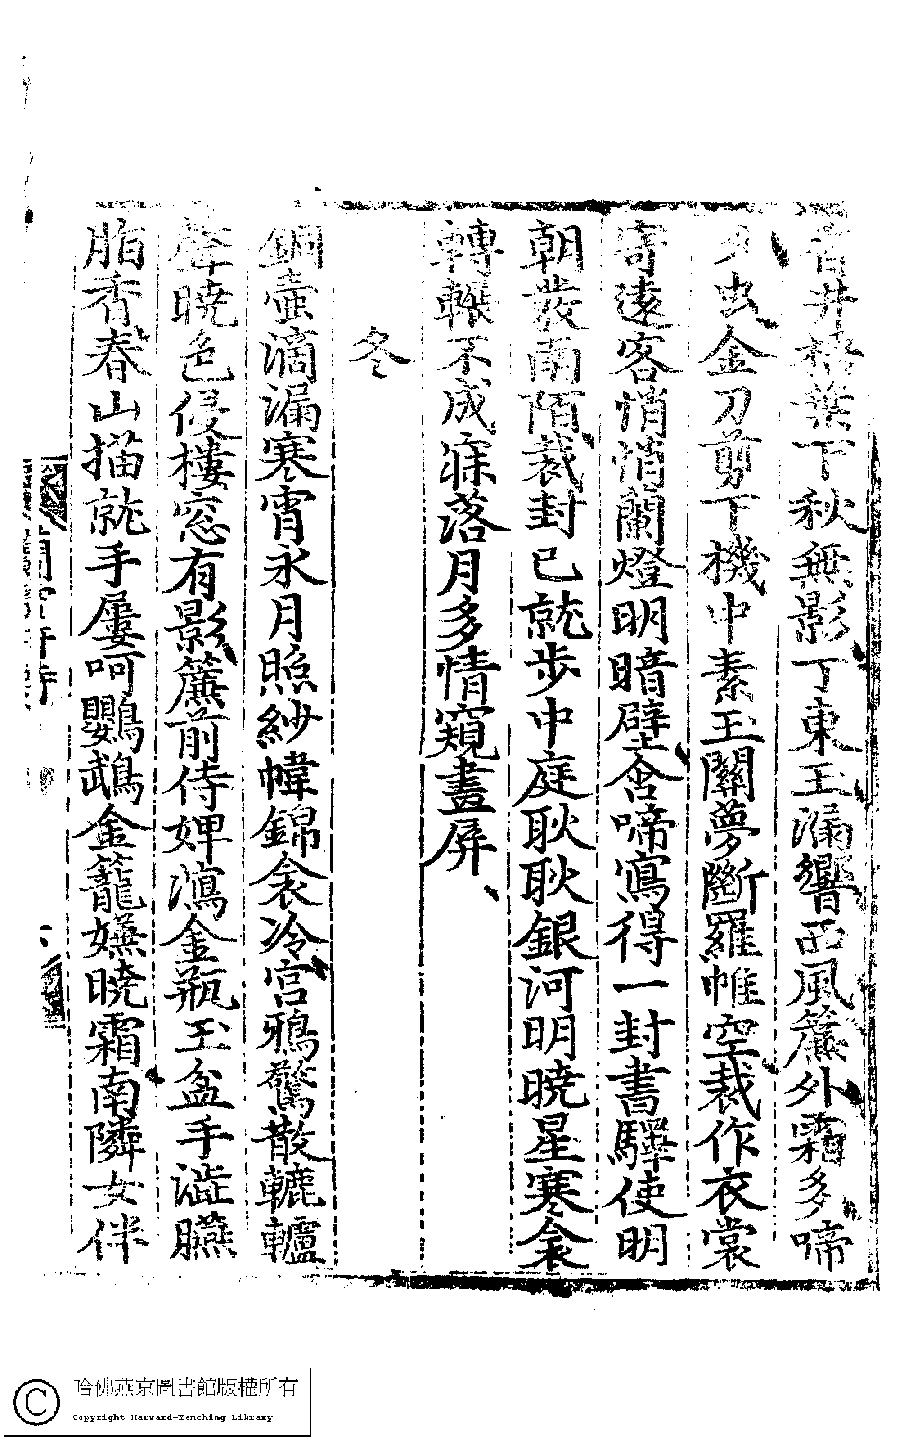 宵井梧葉下秋無影丁東玉漏響西風簾外霜多啼
夕虫金刀剪下機中素玉關夢斷羅帷空裁作衣裳
寄遠客悄悄蘭燈明暗壁含啼寫得一封書驛使明
朝發南陌裁封已就步中庭耿耿銀河明曉星寒衾
轉輾不成寐落月多情窺畫屏
冬
銅壷滴漏寒宵永月照紗幃錦衾冷宮鴉驚散轆轤
聲曉色侵樓窓有影簾前侍婢瀉金瓶玉盆手澁臙
脂香春山描就手屢呵鸚鵡金籠嫌曉霜南隣女伴
蘭雪軒詩
哈佛燕京圖書館版權所有
Copyright Harvard-Yenching Library